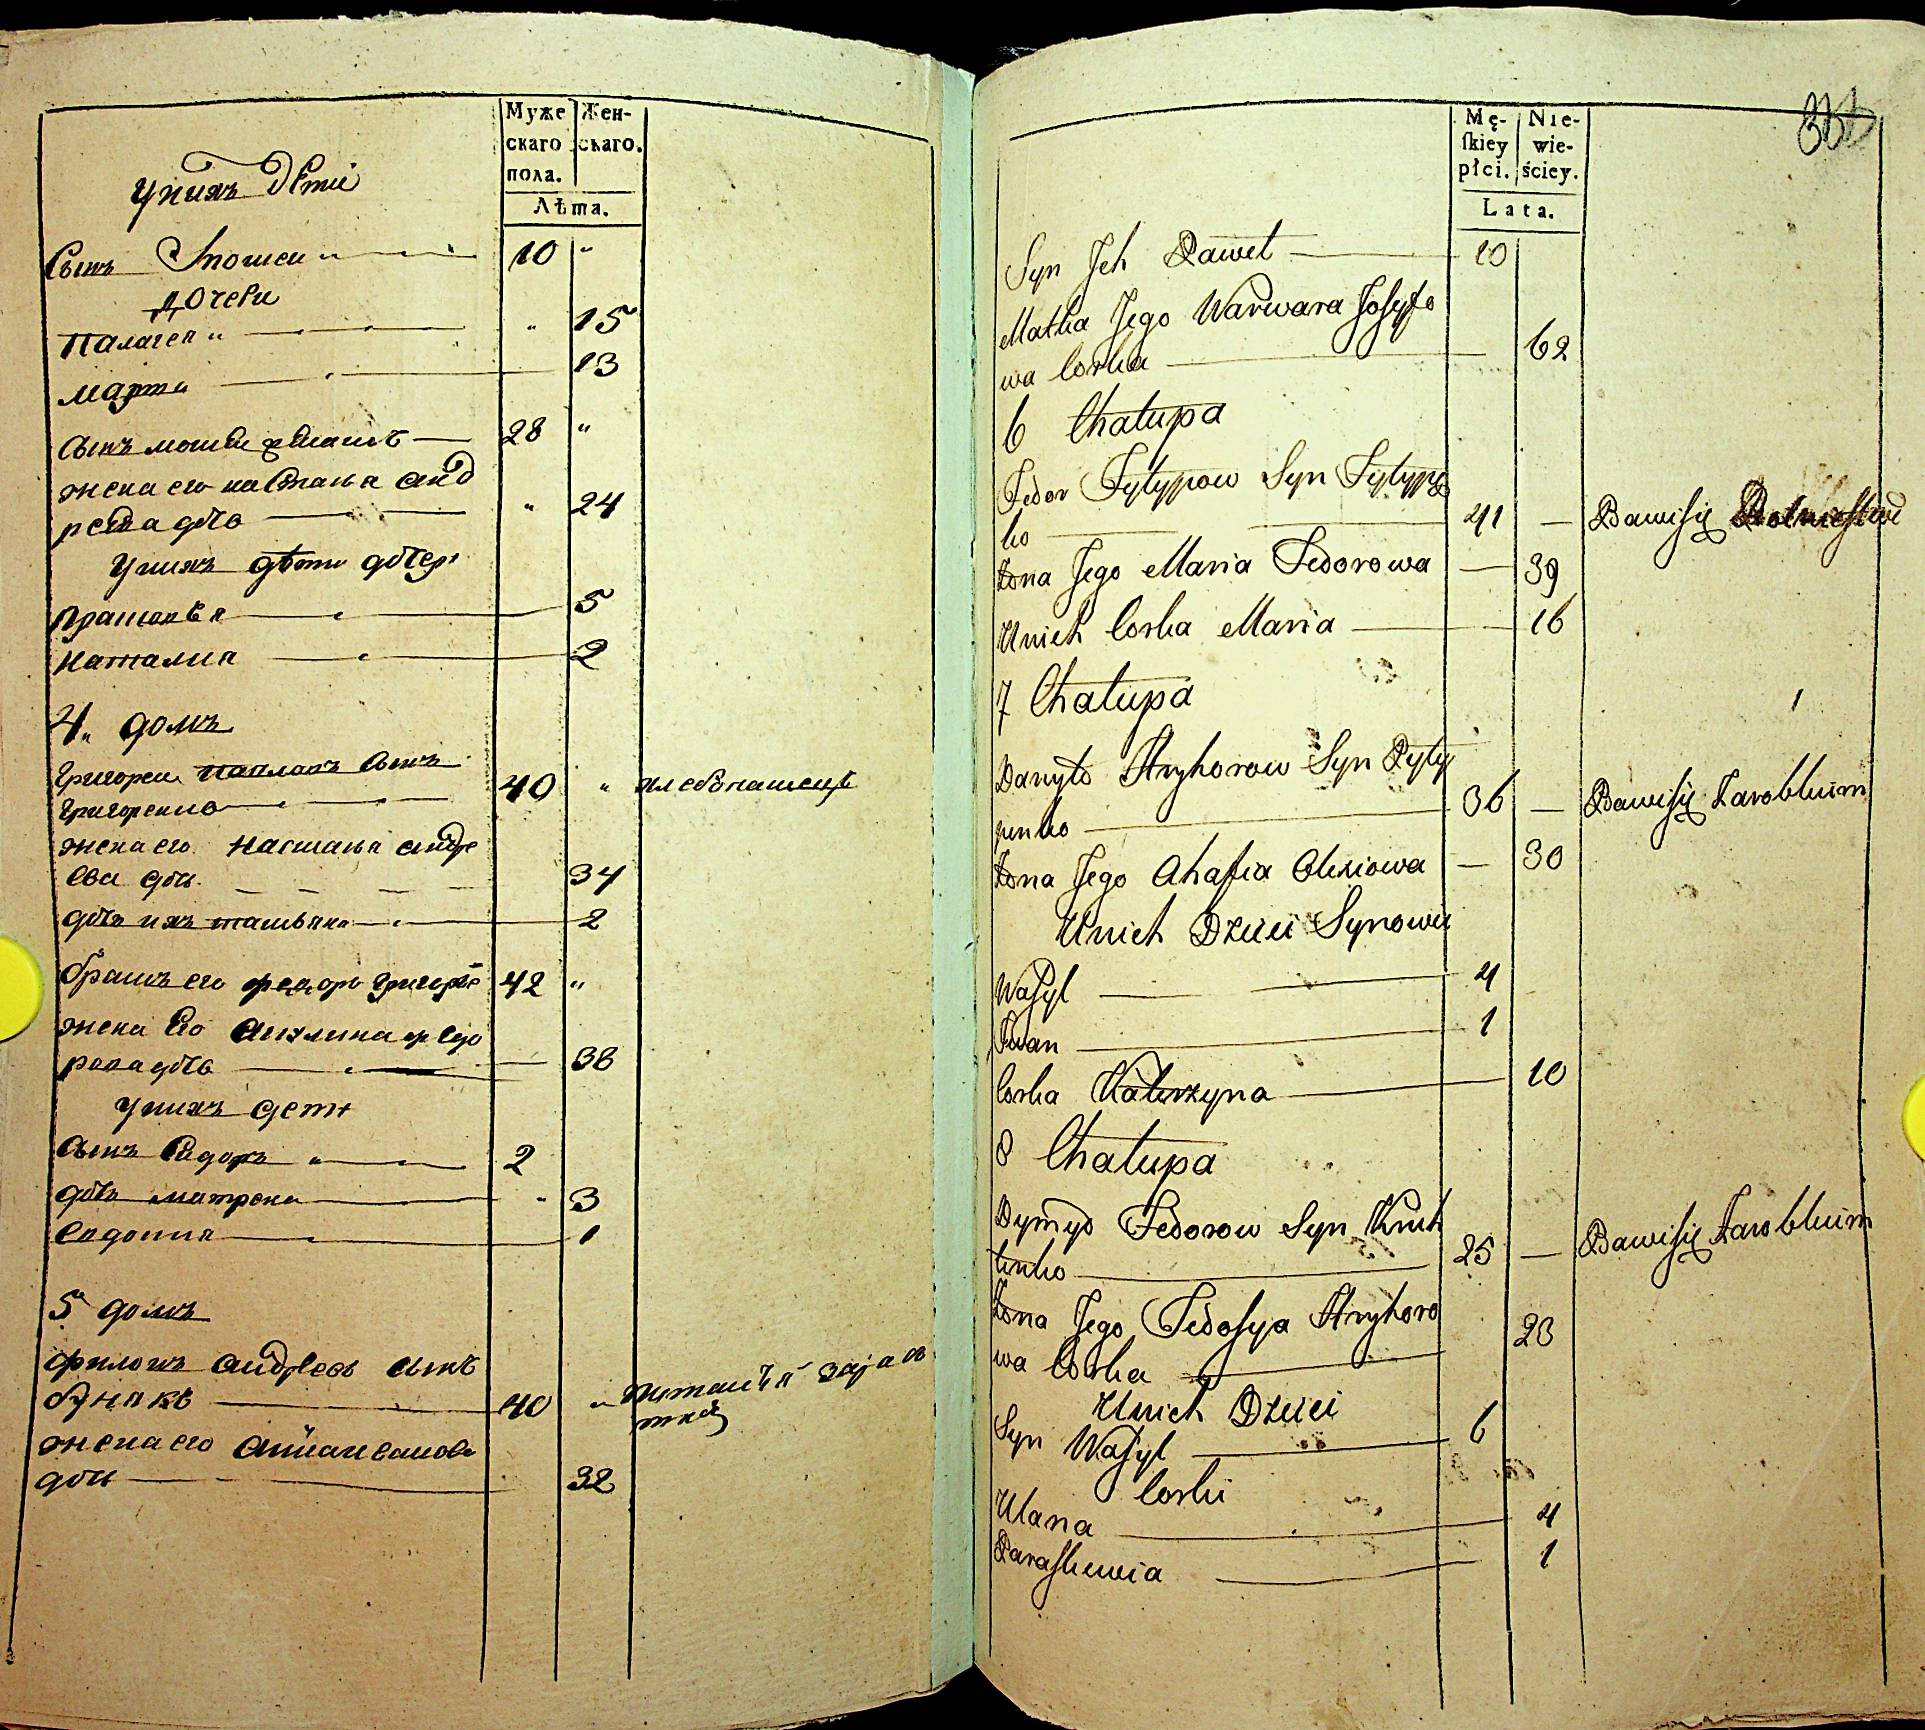 Муже
скаго
пола.
Жен-
скаго.
Лѣта.
Унихъ дѣти
Сынъ 10 "
дочери
Палагея " " 15
марта 13
сынъ 28 "
жена его настасья анд
реева дочь " 24
Унихъ дѣти дочери
Прасковѣя 5
Наталия 2
4. домъ
Григорей сынъ
Григоренко 40 " хлебопашецъ
жена его Настасья андре
ева дочь 34
дочь ихъ татьяна 2
братъ его федоръ 42 "
жена Его Акилина федо
рова дочь 38
Унихъ дети
сынъ Сидоръ " 2
дочь матрона " 3
Евдокия 1
5 домъ
филипъ андреевъ сынъ
бунякъ 40 "
жена его
дочь 32
Mę-
ſkiey
płci.
Nie-
wie-
ściey.
Lata.
Syn Jch Paweł 10
Matka Jego Warwara Josyfo
wa Corka 62
6 Chałupa
Fedor Fylypow Syn Fylypę
ko 41 — Bawi się Rolnictwe
Żona Jego Maria Fedorowa — 39
Unich Corka Maria 16
7 Chałupa
Danyło Hryhorow Syn Pyly
penko 36 — Bawi się Zarobkuim
Żona Jego Ahafia Olexiowa — 30
Unich Dzieci Synowie
Wasyl 4
Iwan 1
Corka Katerzyna 10
8 Chałupa
Dymyd Fedorow Syn
tenko 25 — Bawi się Zarobkuim
Żona Jego Fedosya Hryhoro
wa Corka 23
Unich Dzieci
Syn Wasyl 6
Corki
Ulana 4
Paraskewia 1